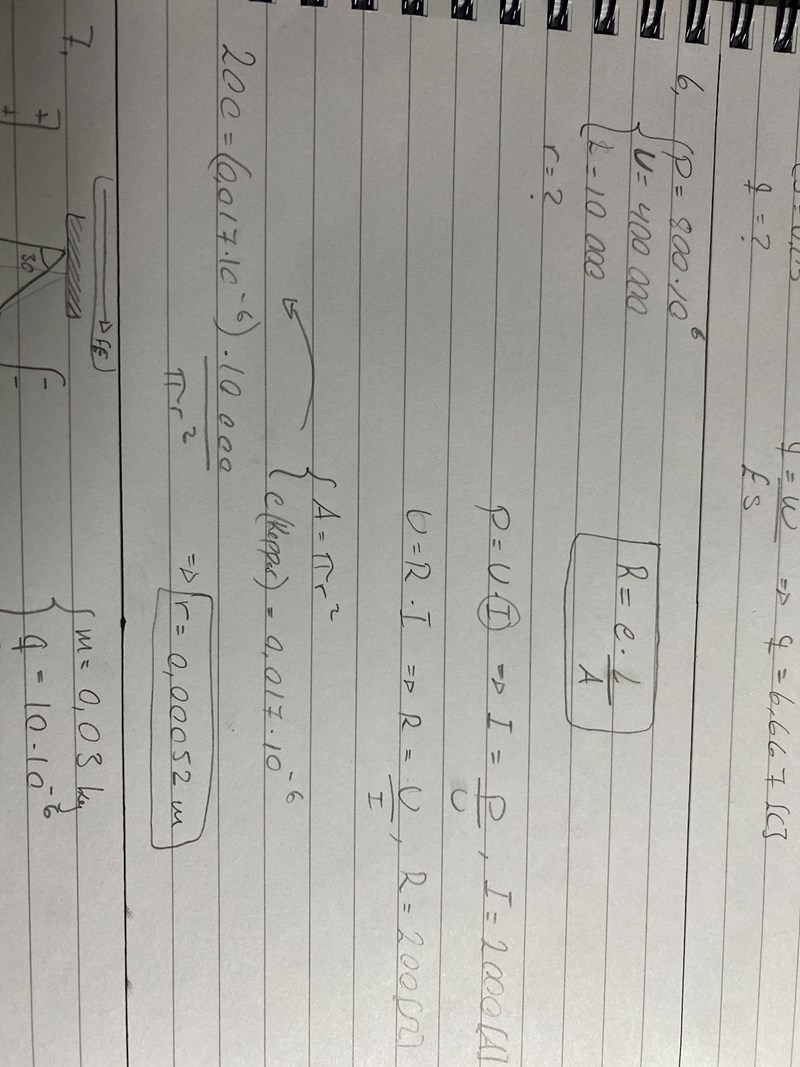 q = ?
q = W => q = 6,667 [C]
ES
6, { P = 800·10⁶
U = 400 000
L = 10 000
r = ?
R = ρ · L
A
P = U·I => I = P , I = 2000 [A]
U
U = R · I => R = U , R = 200 [Ω]
I
{ A = πr²
ρ(Koppar) = 0,017·10⁻⁶
200 = (0,017·10⁻⁶) · 10 000
πr²
=> r = 0,00052 m
7,
{ m = 0,03 kg
q = 10·10⁻⁶
30